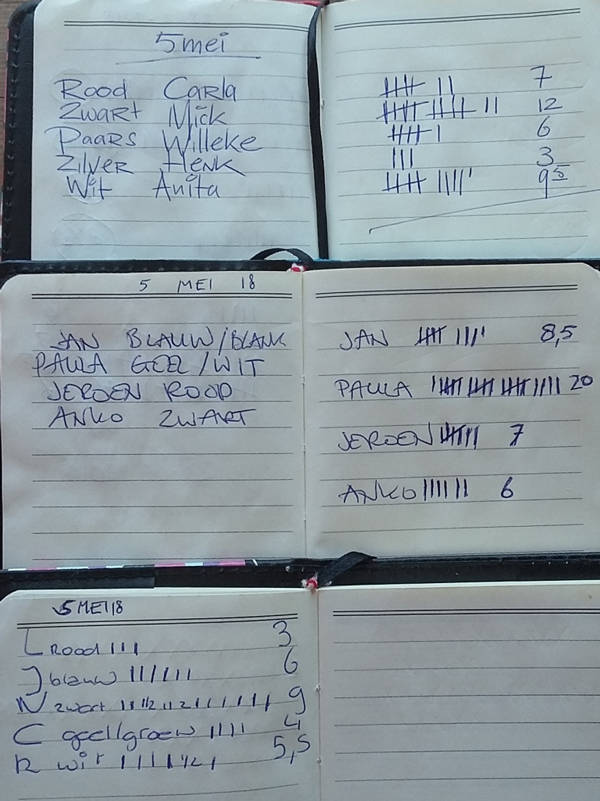 5 mei
Rood Carla
Zwart Mick
Paars Willeke
Zilver Henk
Wit Anita
卌 || 7
卌 卌 || 12
卌 | 6
||| 3
卌 ||||' 9 5
5 MEI 18
JAN BLAUW/BLANK
PAULA GEEL/WIT
JEROEN ROOD
ANKO ZWART
JAN 卌 |||' 8,5
PAULA |卌 卌 卌 |||| 20
JEROEN 卌 || 7
ANKO |||||| 6
5 MEI 18
L Rood ||| 3
J blauw |||||| 6
N zwart 9
C geel/groen |||| 4
R wit 5,5